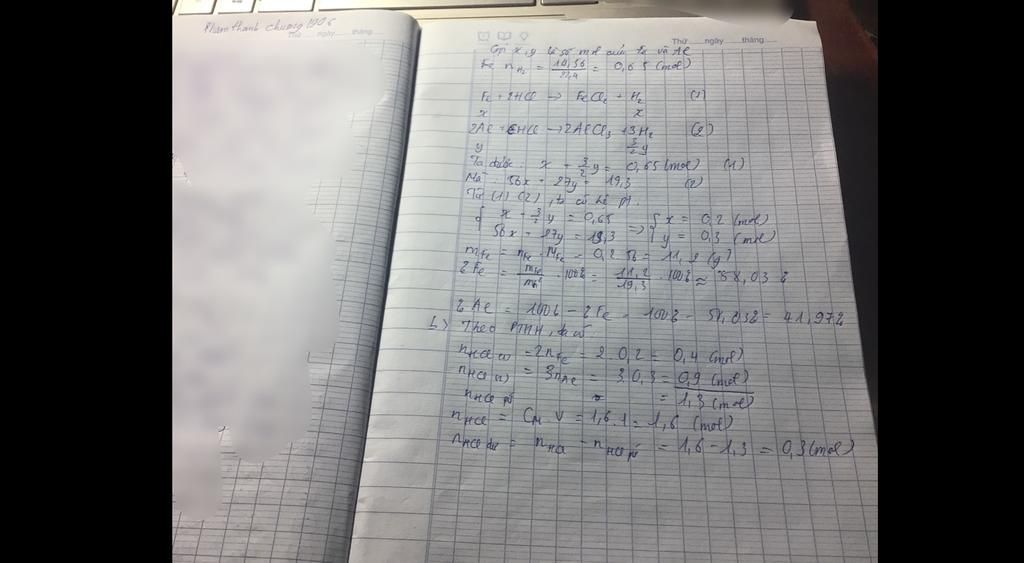 Phạm thanh chương 1906
Thứ ...... ngày ...... tháng ......
Thứ ...... ngày ...... tháng ......
Gọi x, y là số mol của Fe và Al
n H₂ = 14,56 / 22,4 = 0,65 (mol)
Fe + 2HCl → FeCl₂ + H₂ (1)
x x
2Al + 6HCl → 2AlCl₃ + 3H₂ (2)
y 3/2 y
Ta được: x + 3/2 y = 0,65 (mol) (1)
Mà 56x + 27y = 19,3 (2)
Từ (1) (2), ta có hệ pt:
{ x + 3/2 y = 0,65 => { x = 0,2 (mol)
56x + 27y = 19,3 y = 0,3 (mol)
mFe = nFe . MFe = 0,2 . 56 = 11,2 (g)
% Fe = mFe / mhh . 100% = 11,2 / 19,3 . 100% ≈ 58,03 %
% Al = 100% - % Fe = 100% - 58,03% = 41,97%
b) Theo PTHH, ta có:
nHCl (1) = 2nFe = 2 . 0,2 = 0,4 (mol)
nHCl (2) = 3nAl = 3.0,3 = 0,9 (mol)
nHCl pứ = 1,3 (mol)
nHCl = CM . V = 1,6 . 1 = 1,6 (mol)
nHCl dư = nHCl - nHCl pứ = 1,6 - 1,3 = 0,3 (mol)